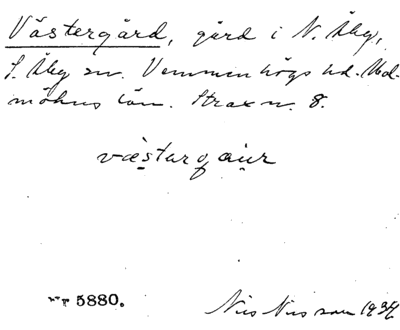 Västergård, gård i N. Åby,
S. Åby sn. Vemmenhögs hd. Mal-
möhus län. Strax n. 8.
væstargau̯r
Nr 5880.
Nils Nilsson 1934